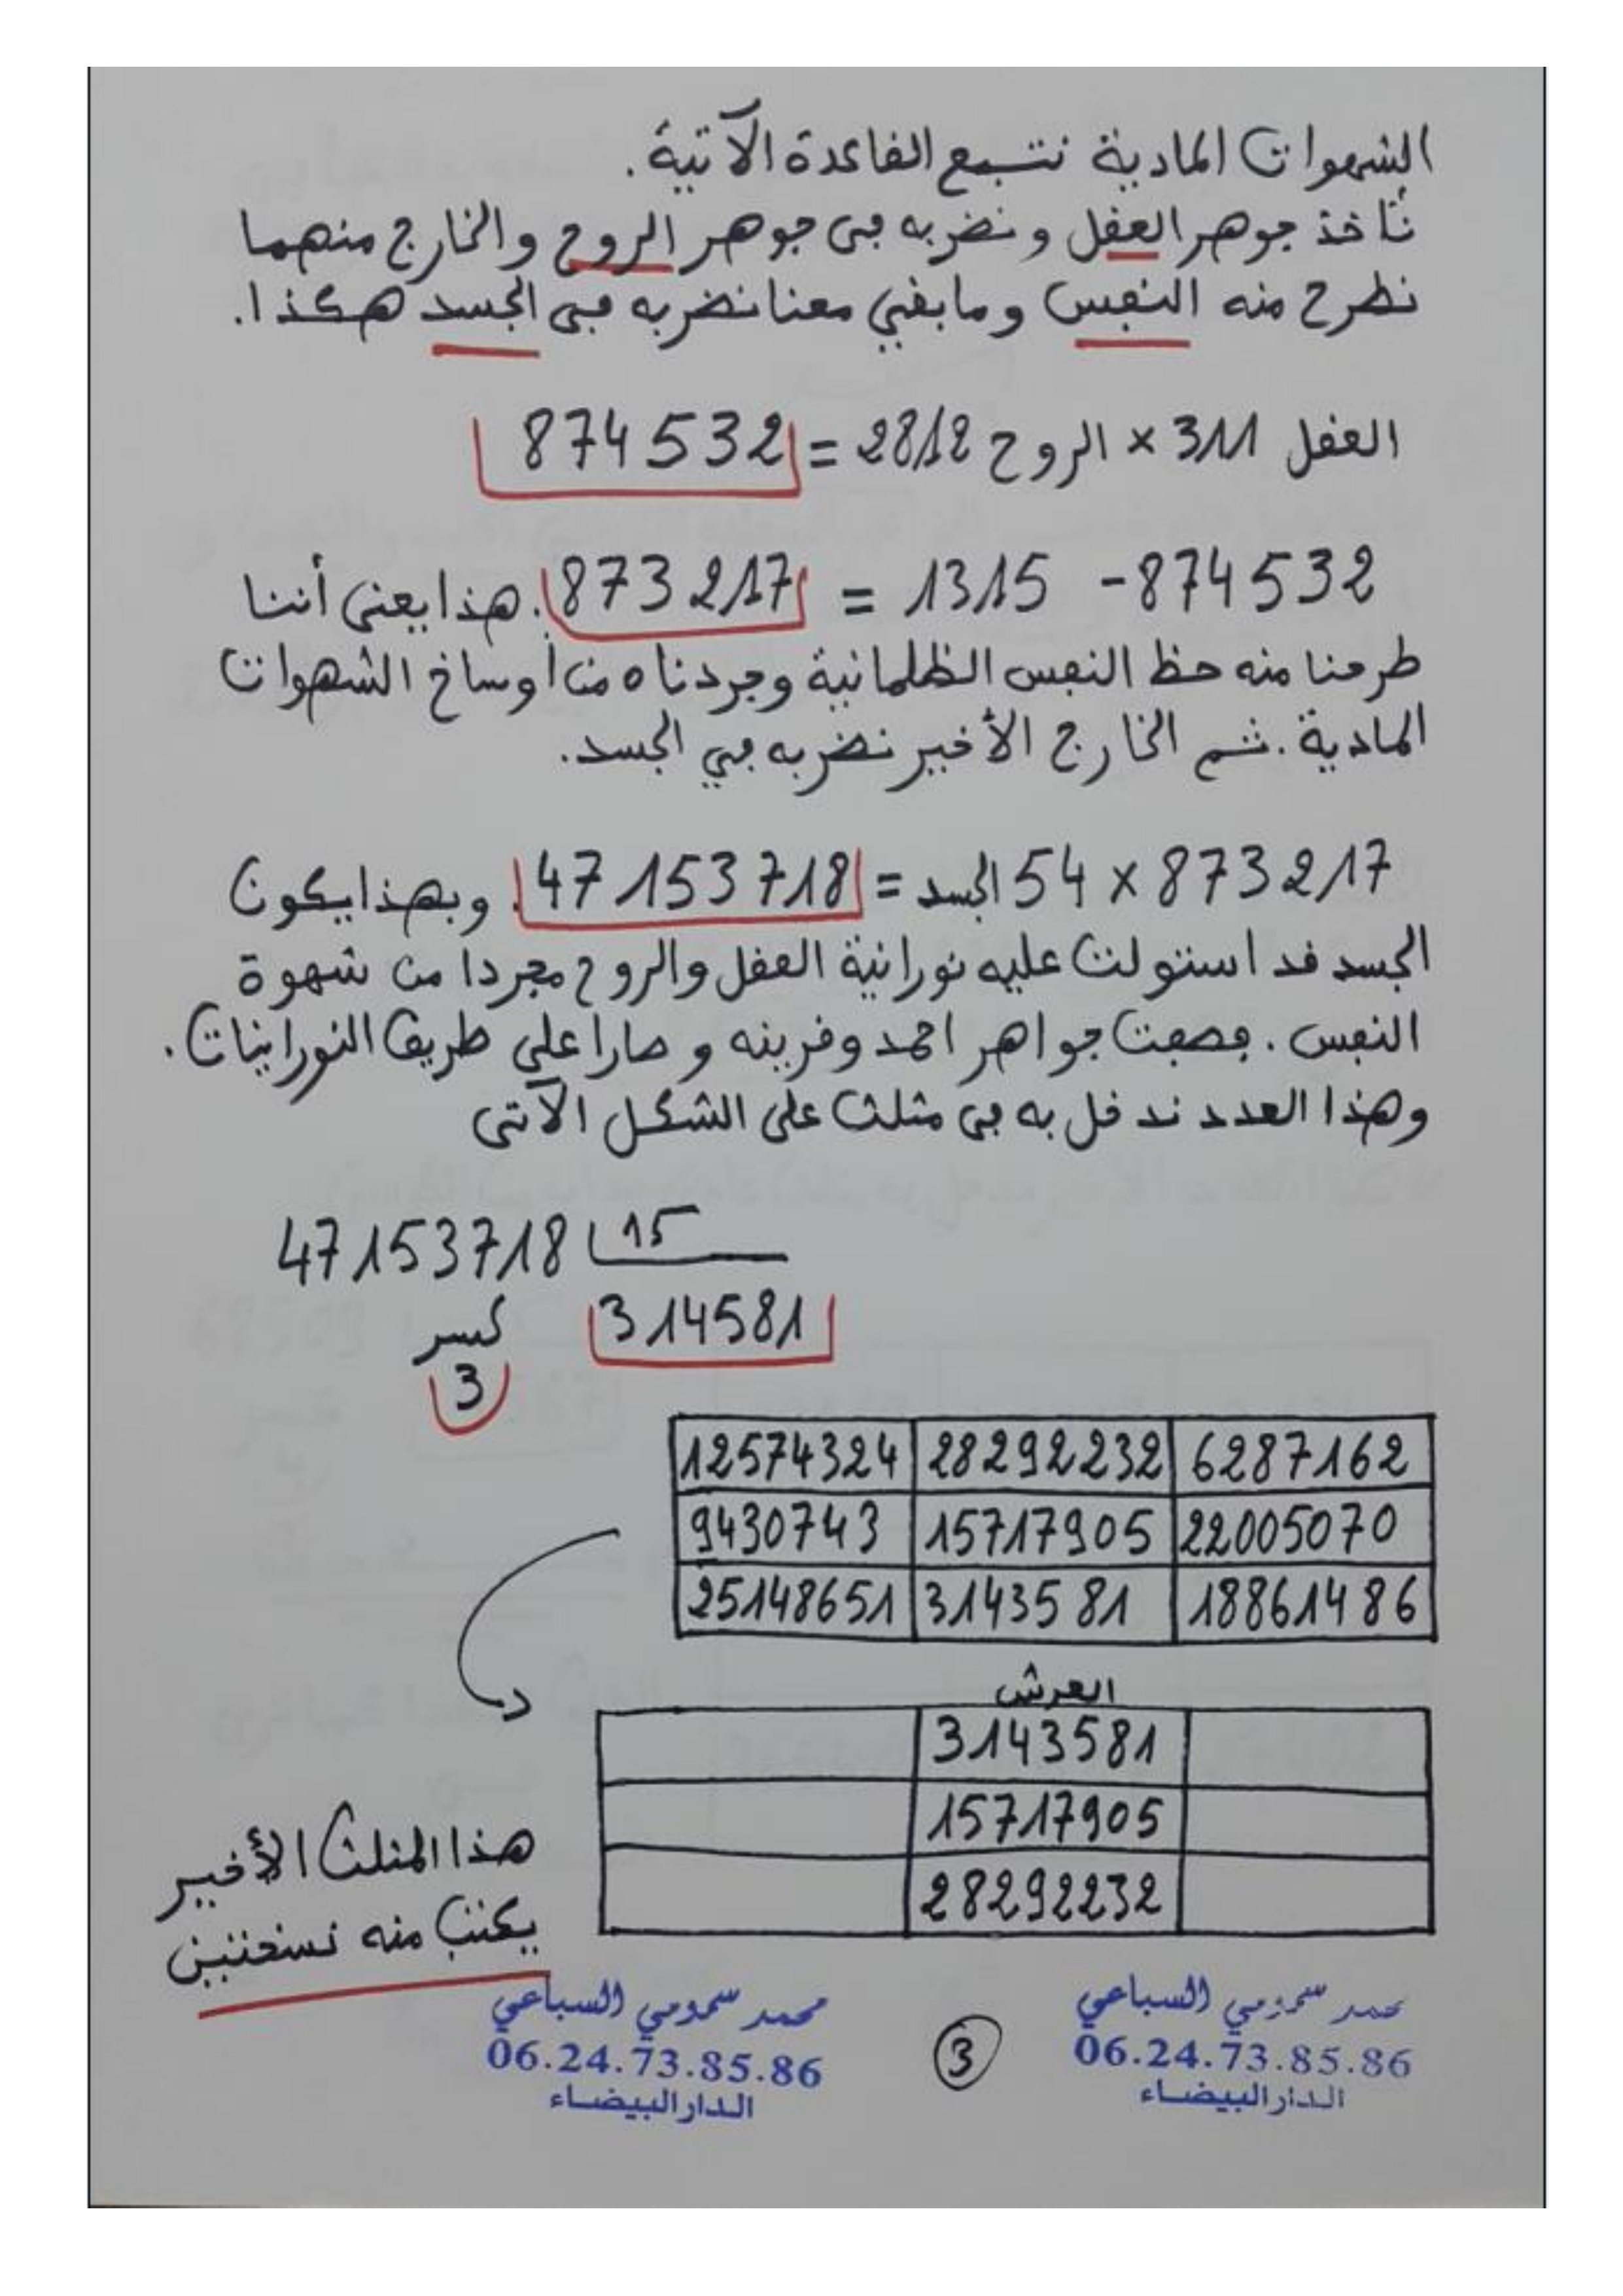 الشهوات المادية نتبع الفاعدة الآتية.
نأخذ جوهر العفل ونضربه في جوهر الروح والخارج منهما
نطرح منه النفس وما بفي معنا نضربه في الجسد هكذا.
العفل 311 × الروح 2812 = 874532
874532 - 1315 = 873217. هذا يعني أننا
طرحنا منه حظ النفس الظلمانية وجردناه من أوساخ الشهوات
المادية. ثم الخارج الأخير نضربه في الجسد.
873217 × 54 الجسد = 47153718. وبهذا يكون
الجسد فد استولت عليه نورانية العفل والروح مجردا من شهوة
النفس. فصفت جواهر احمد وفرينه وصارا على طريف النورانيات.
وهذا العدد ندخل به في مثلث على الشكل الآتي
47153718 15
كسر 314581
3
12574324 28292232 6287162
9430743 15717905 22005070
25148651 3143581 18861486
العرش
3143581
15717905
28292232
هذا المثلث الأخير
يكتب منه نسختين
محمد سمومي السباعي
06.24.73.85.86
الدار البيضاء
3
محمد سمومي السباعي
06.24.73.85.86
الدار البيضاء